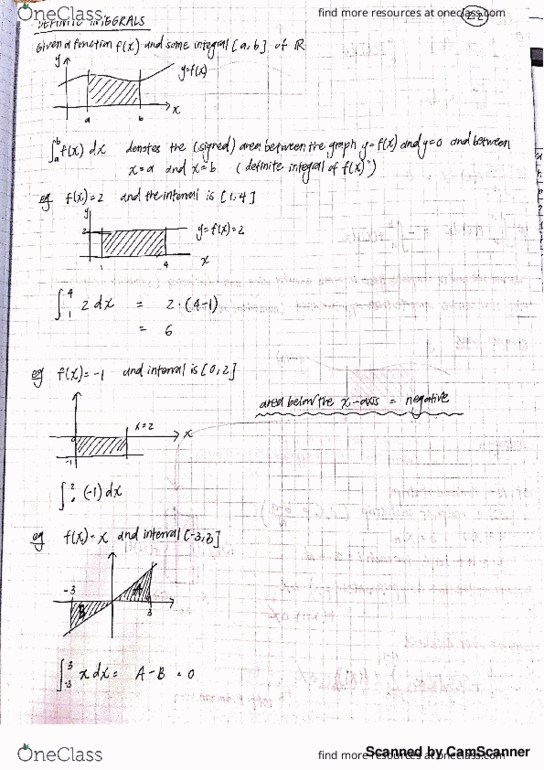 OneClass
find more resources at oneclass.com
DEFINITE INTEGRALS
Given a function f(x) and some integral [a,b] of ℝ
y
y=f(x)
a b x
∫ₐᵇ f(x) dx denotes the (signed) area between the graph y=f(x) and y=0 and between
x=a and x=b (definite integral of f(x))
eg f(x)=2 and the interval is [1,4]
y
2 y=f(x)=2
1 4 x
∫₁⁴ 2 dx = 2·(4-1)
= 6
eg f(x)=-1 and interval is [0,2]
area below the x-axis = negative
0 x=2 x
-1
∫₀² (-1) dx
eg f(x)=x and interval [-3,3]
-3 B A 3
∫₋₃³ x dx = A-B = 0
OneClass
find more resources at oneclass.com
Scanned by CamScanner